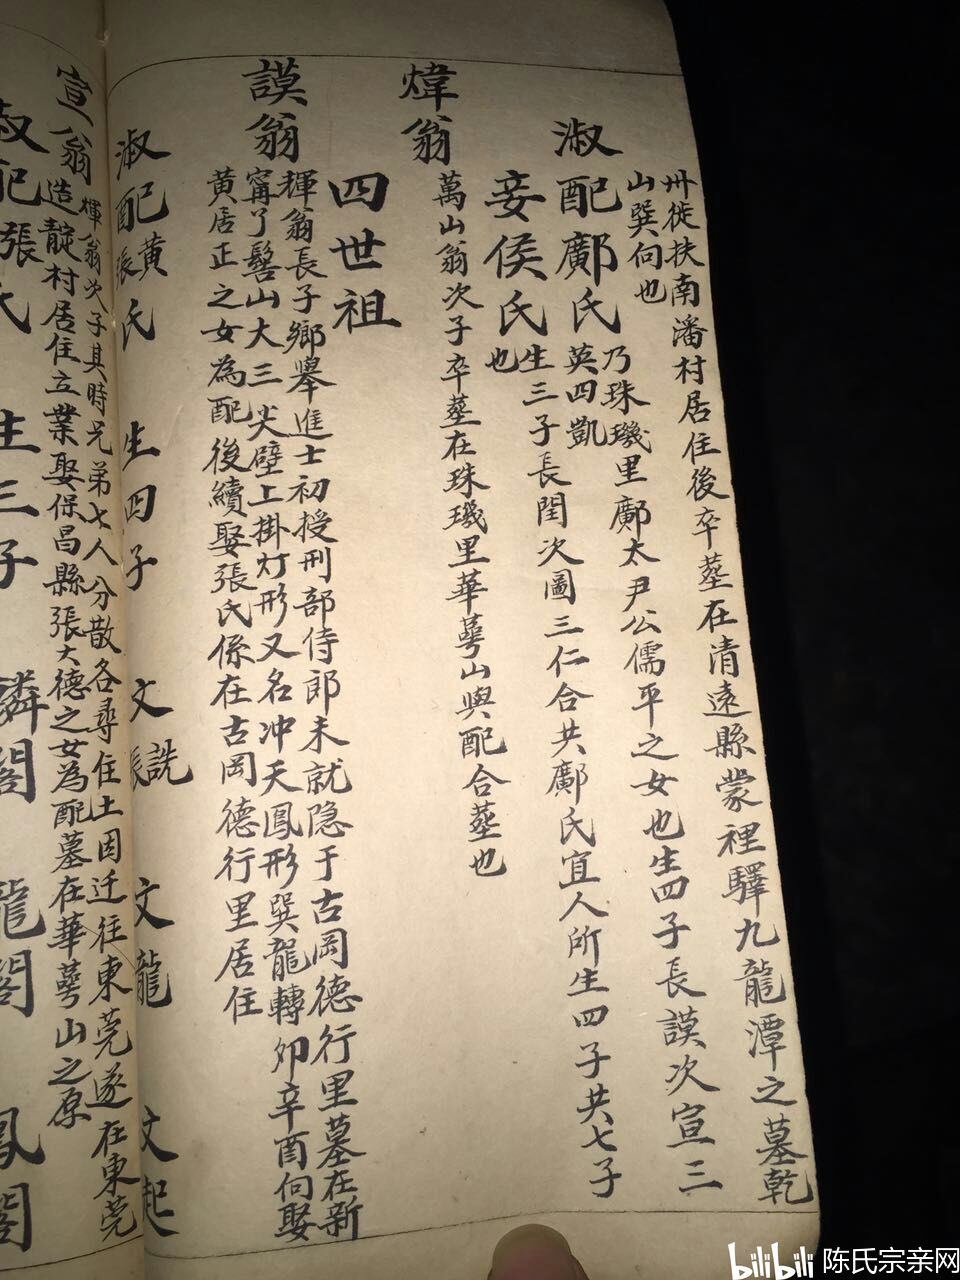 卅徙扶南潘村居住後卒塟在清遠縣蒙裡驛九龍潭之墓乾
山巽向也
淑配鄺氏
乃珠璣里鄺太尹公儒平之女也生四子長謨次宣三
英四凱
妾侯氏
生三子長閏次圖三仁合共鄺氏宜人所生四子共七子
也
煒翁
萬山翁次子卒塟在珠璣里華萼山與配合塟也
四世祖
謨翁
輝翁長子鄉舉進士初授刑部侍郎未就隐于古岡德行里墓在新
甯丫髻山大三尖壁上掛灯形又名冲天鳳形巽龍轉卯辛酉向娶
黄居正之女為配後續娶張氏係在古岡德行里居住
淑配黄張氏 生四子 文詵 文龍 文起
宣翁
煇翁次子其時兄弟七人分散各尋住土因迁往東莞遂在東莞
造靛村居住立業娶保昌縣張大德之女為配墓在華萼山之原
淑配張氏 生三子 麟閣 龍閣 鳳閣
bilibili 陈氏宗亲网